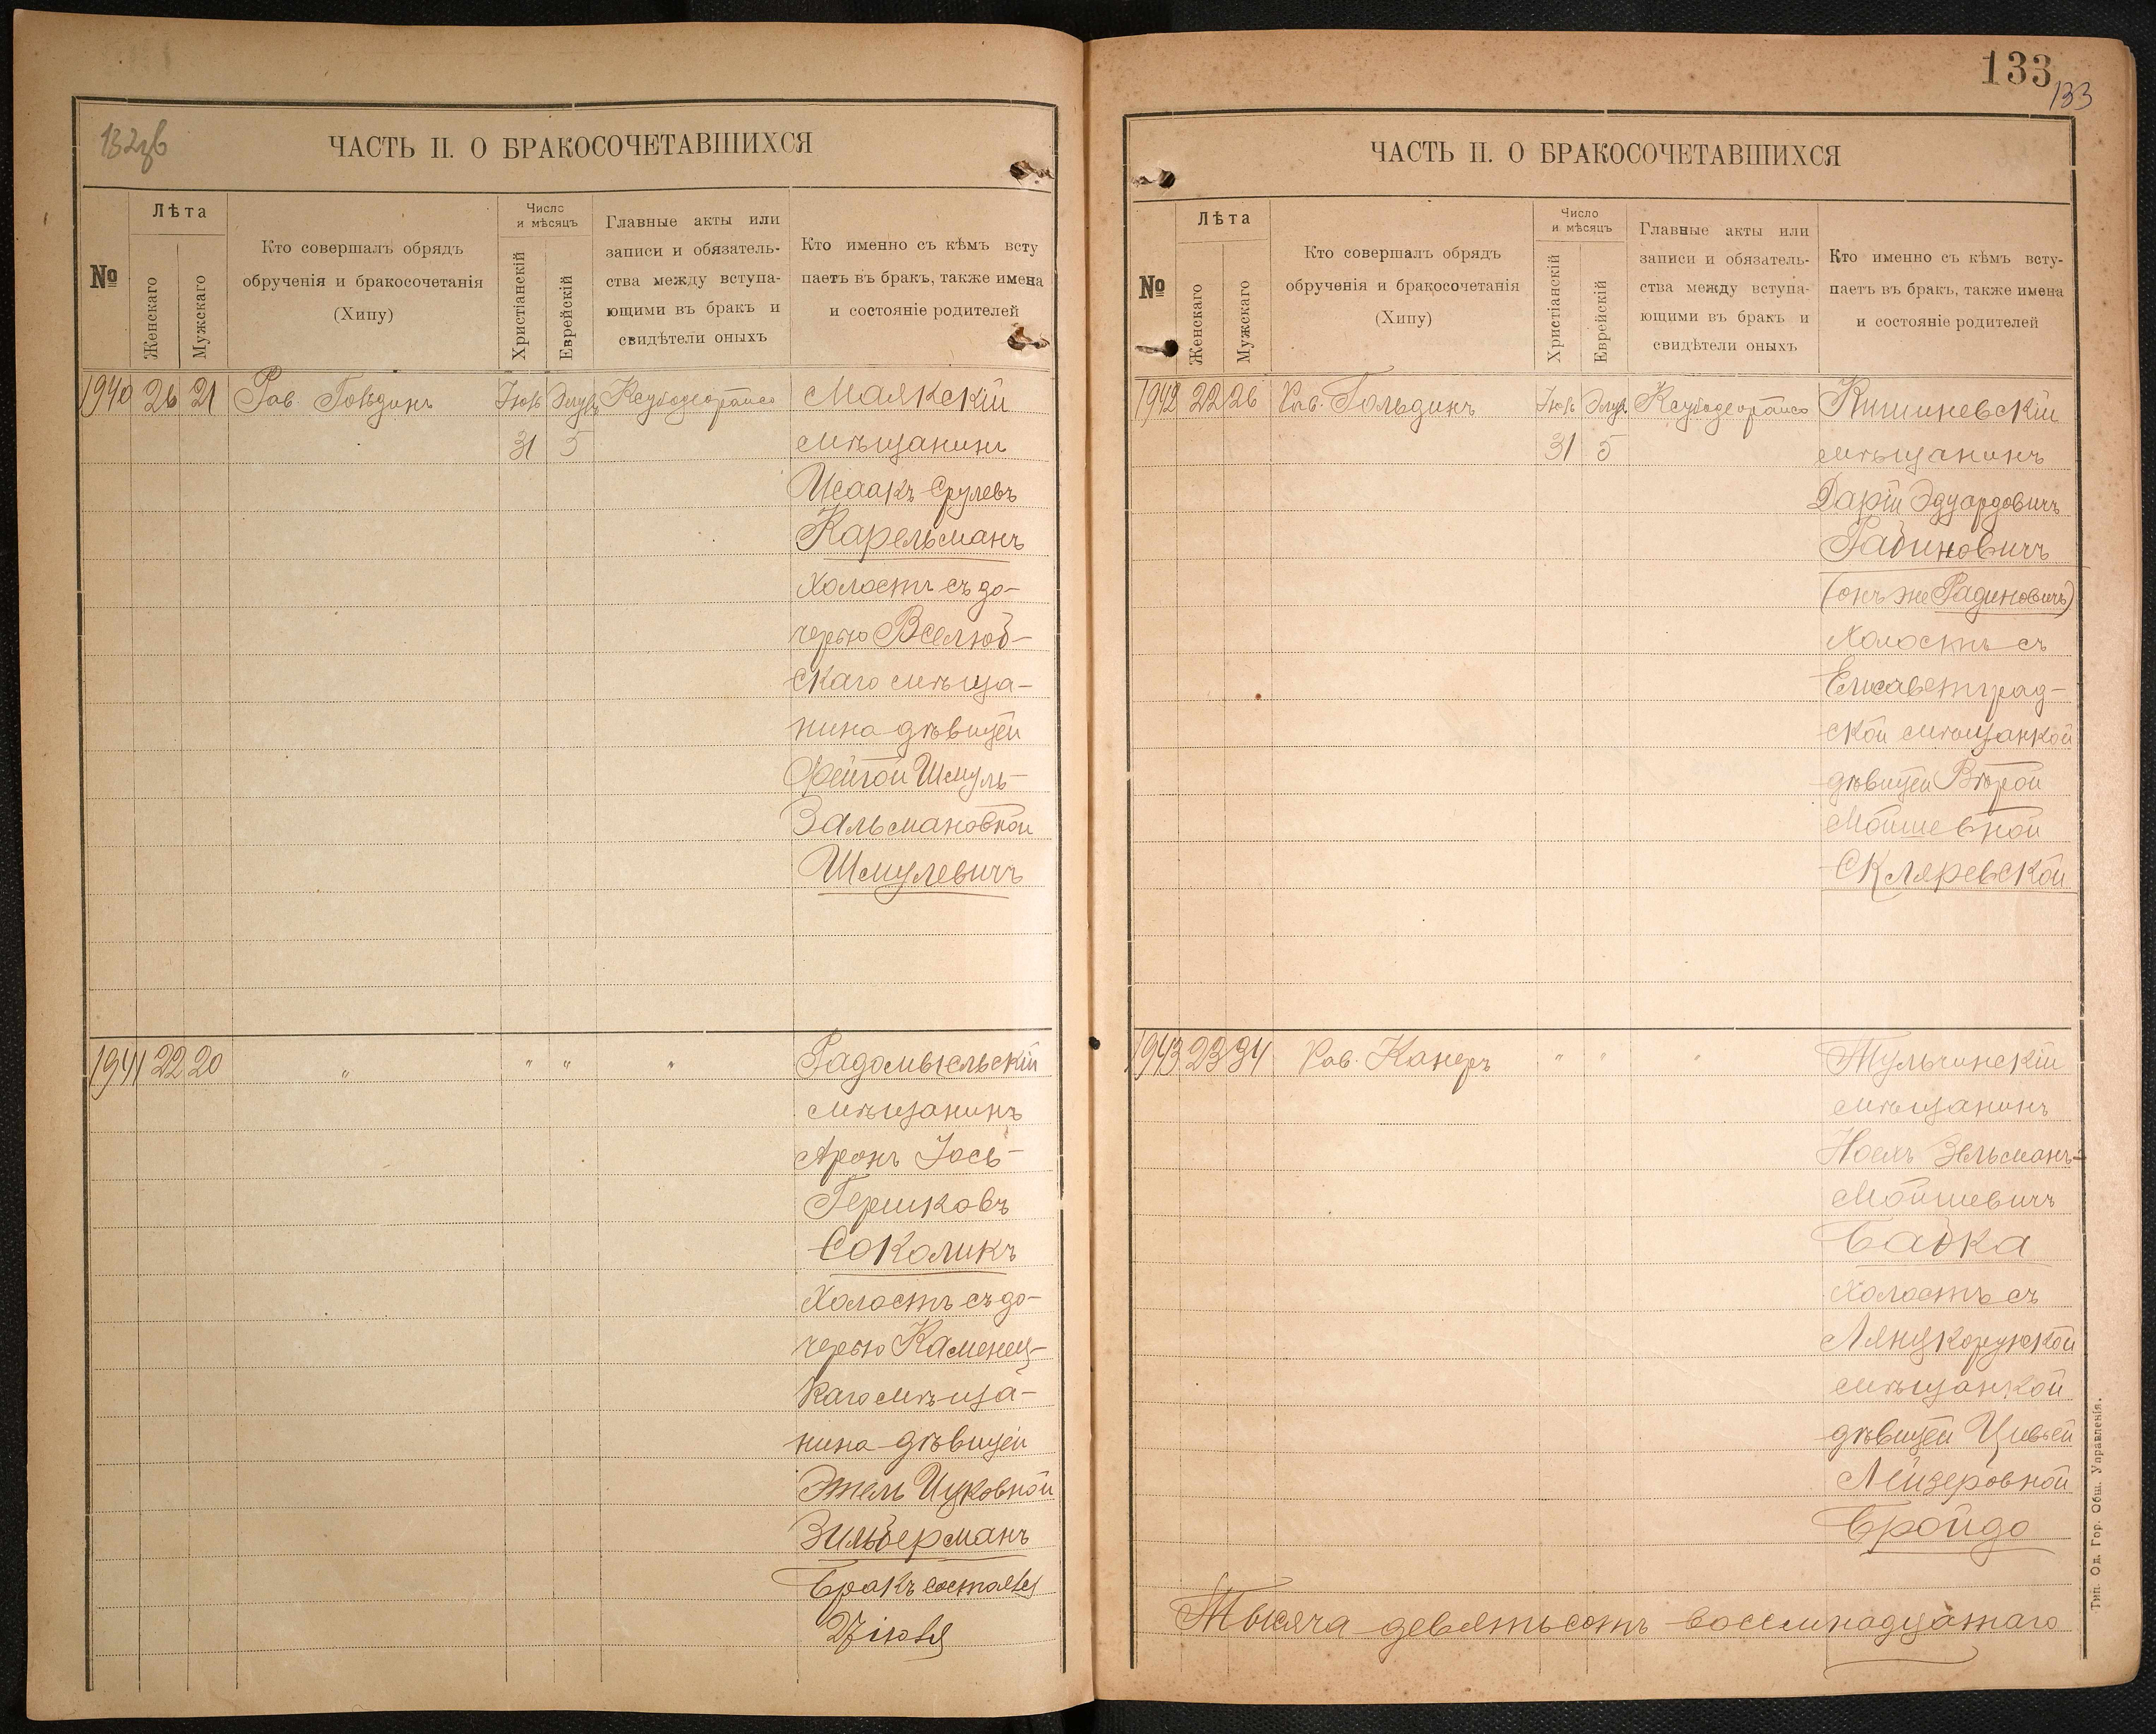 132об
ЧАСТЬ II. О БРАКОСОЧЕТАВШИХСЯ
№
Лѣта
Женскаго
Мужскаго
Кто совершалъ обрядъ
обрученія и бракосочетанія
(Хипу)
Число
и мѣсяцъ
Христіанскій
Еврейскій
Главные акты или
записи и обязатель-
ства между вступа-
ющими въ бракъ и
свидѣтели оныхъ
Кто именно съ кѣмъ всту
паетъ въ бракъ, также имена
и состояніе родителей
1940 26 21 Рав. Іюль Элулъ Маякскій
31 5 мѣщанинъ
Исаакъ Срулевъ
Карельманъ
холостъ съ до-
черью Вселюб-
скаго мѣща-
нина дѣвицей
Фейгой Шмуль-
Зальмановной
Шмулевичъ
1941 22 20 " " " " Радомысльскій
мѣщанинъ
Аронъ Іось-
Гершковъ
Соколикъ
холостъ съ до-
черью Каменец-
каго мѣща-
нина дѣвицей
Этель Ицковной
Зильберманъ
Бракъ состоялся
27 іюля
133
133
ЧАСТЬ II. О БРАКОСОЧЕТАВШИХСЯ
№
Лѣта
Женскаго
Мужскаго
Кто совершалъ обрядъ
обрученія и бракосочетанія
(Хипу)
Число
и мѣсяцъ
Христіанскій
Еврейскій
Главные акты или
записи и обязатель-
ства между вступа-
ющими въ бракъ и
свидѣтели оныхъ
Кто именно съ кѣмъ всту-
паетъ въ бракъ, также имена
и состояніе родителей
1942 22 26 Рав. Гольдинъ Іюль Элулъ Кишиневскій
31 5 мѣщанинъ
Дарій Эдуардовичъ
Рабиновичъ
(онъ же Радиновичъ)
холостъ съ
Елисаветград-
ской мѣщанкой
дѣвицей Вѣрой
Мойшевной
Скляревской
1943 23 34 Рав. Канеръ " " " Тульчинскій
мѣщанинъ
Ноехъ Зельманъ-
Мойшевичъ
Бабка
холостъ съ
Лянцкорунской
мѣщанкой
дѣвицей Цивьей
Лейзеровной
Бройдо
Тысяча девятьсотъ восемнадцатаго
Тип. Од. Гор. Общ. Управленія.